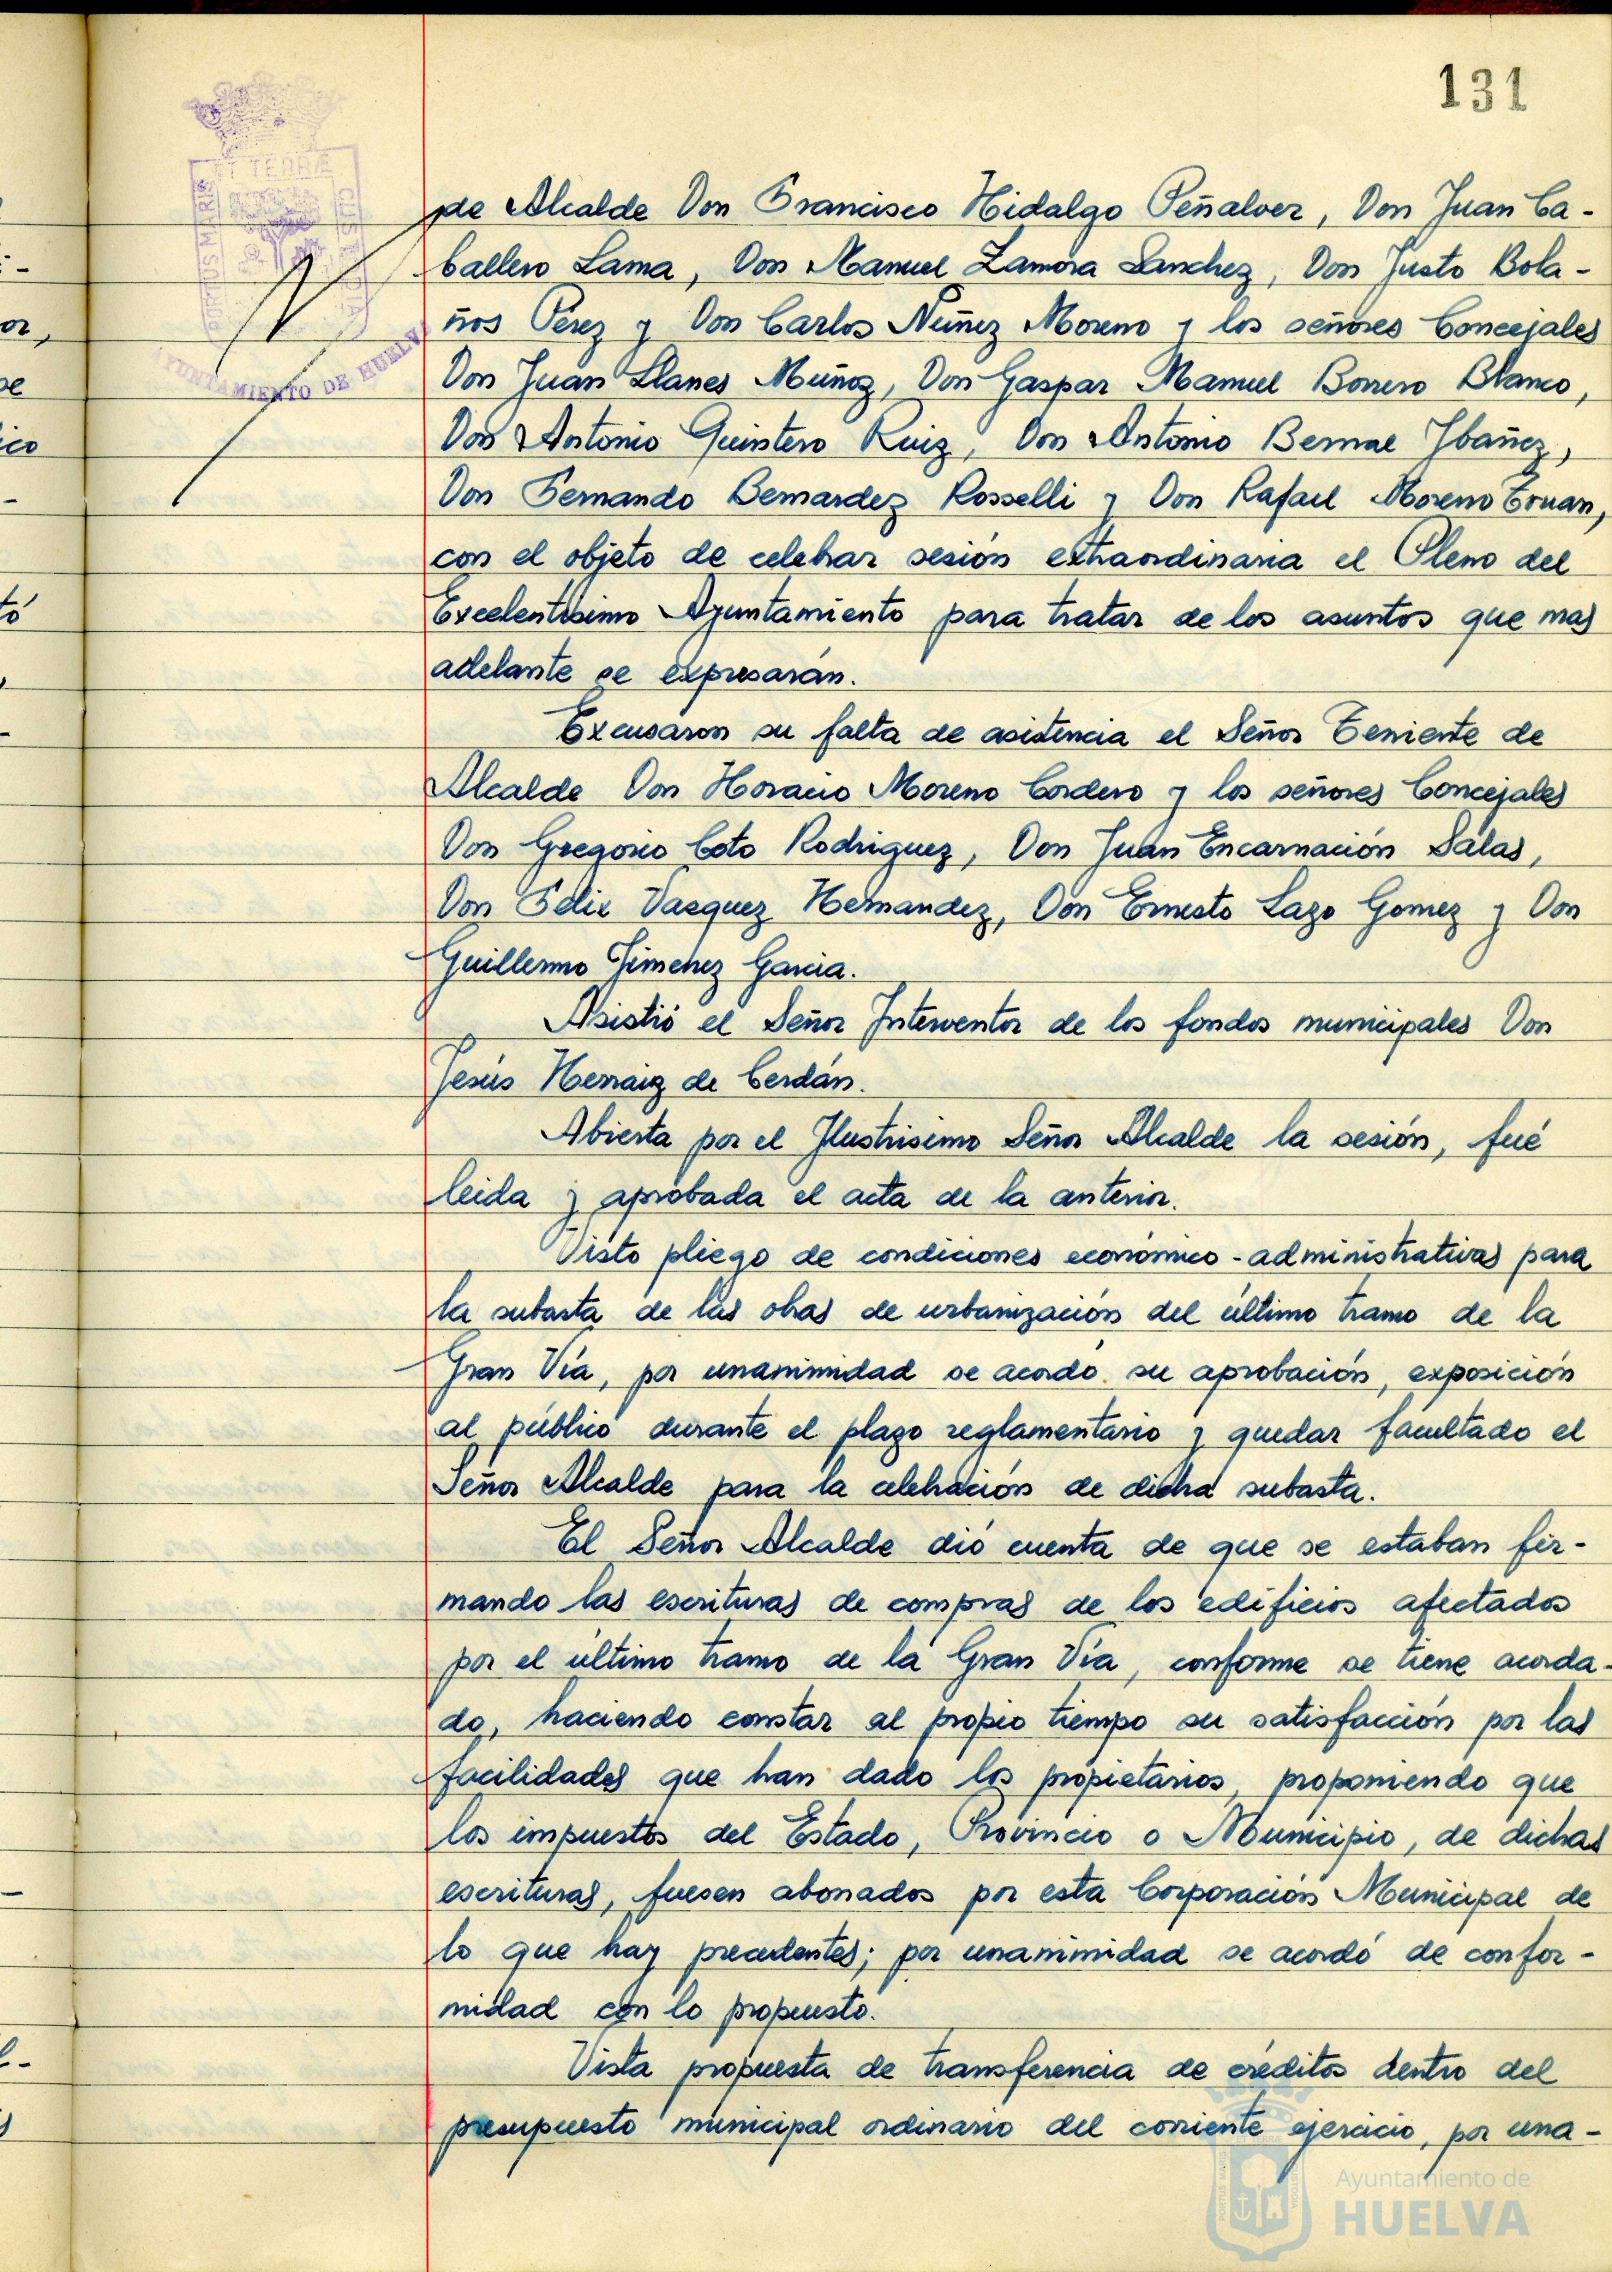 131
ET TERRÆ
PORTUS MARIS
CUSTODIA
AYUNTAMIENTO DE HUELVA
de Alcalde Don Francisco Hidalgo Peñalver, Don Juan Ca-
ballero Lama, Don Manuel Zamora Sanchez, Don Justo Bola-
ños Pérez y Don Carlos Nuñez Moreno y los señores Concejales
Don Juan Llanes Muñoz, Don Gaspar Manuel Borrero Blanco,
Don Antonio Quintero Ruiz, Don Antonio Bernal Ybañez,
Don Fernando Bernardez Rosselli y Don Rafael Moreno Truan,
con el objeto de celebrar sesión extraordinaria el Pleno del
Excelentisimo Ayuntamiento para tratar de los asuntos que mas
adelante se expresarán.
Excusaron su falta de asistencia el Señor Teniente de
Alcalde Don Horacio Moreno Cordero y los señores Concejales
Don Gregorio Coto Rodriguez, Don Juan Encarnación Salas,
Don Felix Vazquez Hernandez, Don Ernesto Lazo Gomez y Don
Guillermo Jimenez Garcia.
Asistió el Señor Interventor de los fondos municipales Don
Jesús Herraiz de Cerdán.
Abierta por el Ilustrisimo Señor Alcalde la sesión, fué
leida y aprobada el acta de la anterior.
Visto pliego de condiciones económico-administrativas para
la subasta de las obras de urbanización del último tramo de la
Gran Vía, por unanimidad se acordó su aprobación, exposición
al público durante el plazo reglamentario y quedar facultado el
Señor Alcalde para la celebración de dicha subasta.
El Señor Alcalde dió cuenta de que se estaban fir-
mando las escrituras de compras de los edificios afectados
por el último tramo de la Gran Vía, conforme se tiene acorda-
do, haciendo constar al propio tiempo su satisfacción por las
facilidades que han dado los propietarios, proponiendo que
los impuestos del Estado, Provincio o Municipio, de dichas
escrituras, fuesen abonados por esta Corporación Municipal de
lo que hay precedentes; por unanimidad se acordó de confor-
midad con lo propuesto.
Vista propuesta de transferencia de créditos dentro del
presupuesto municipal ordinario del corriente ejercicio, por una-
Ayuntamiento de
HUELVA